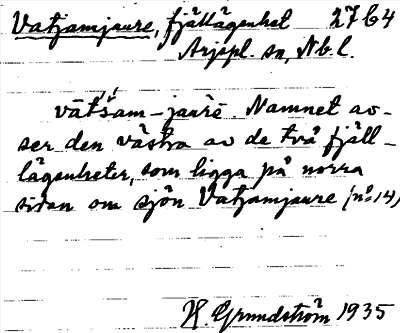 Vatjamjaure, fjällägenhet 27 b 4
Arjepl. sn, Nb. l.
vāt́śam-jaurē. Namnet av-
ser den västra av de två fjäll-
lägenheter, som ligga på norra
sidan om sjön Vatjamjaure (nº 14)
H. Grundström 1935